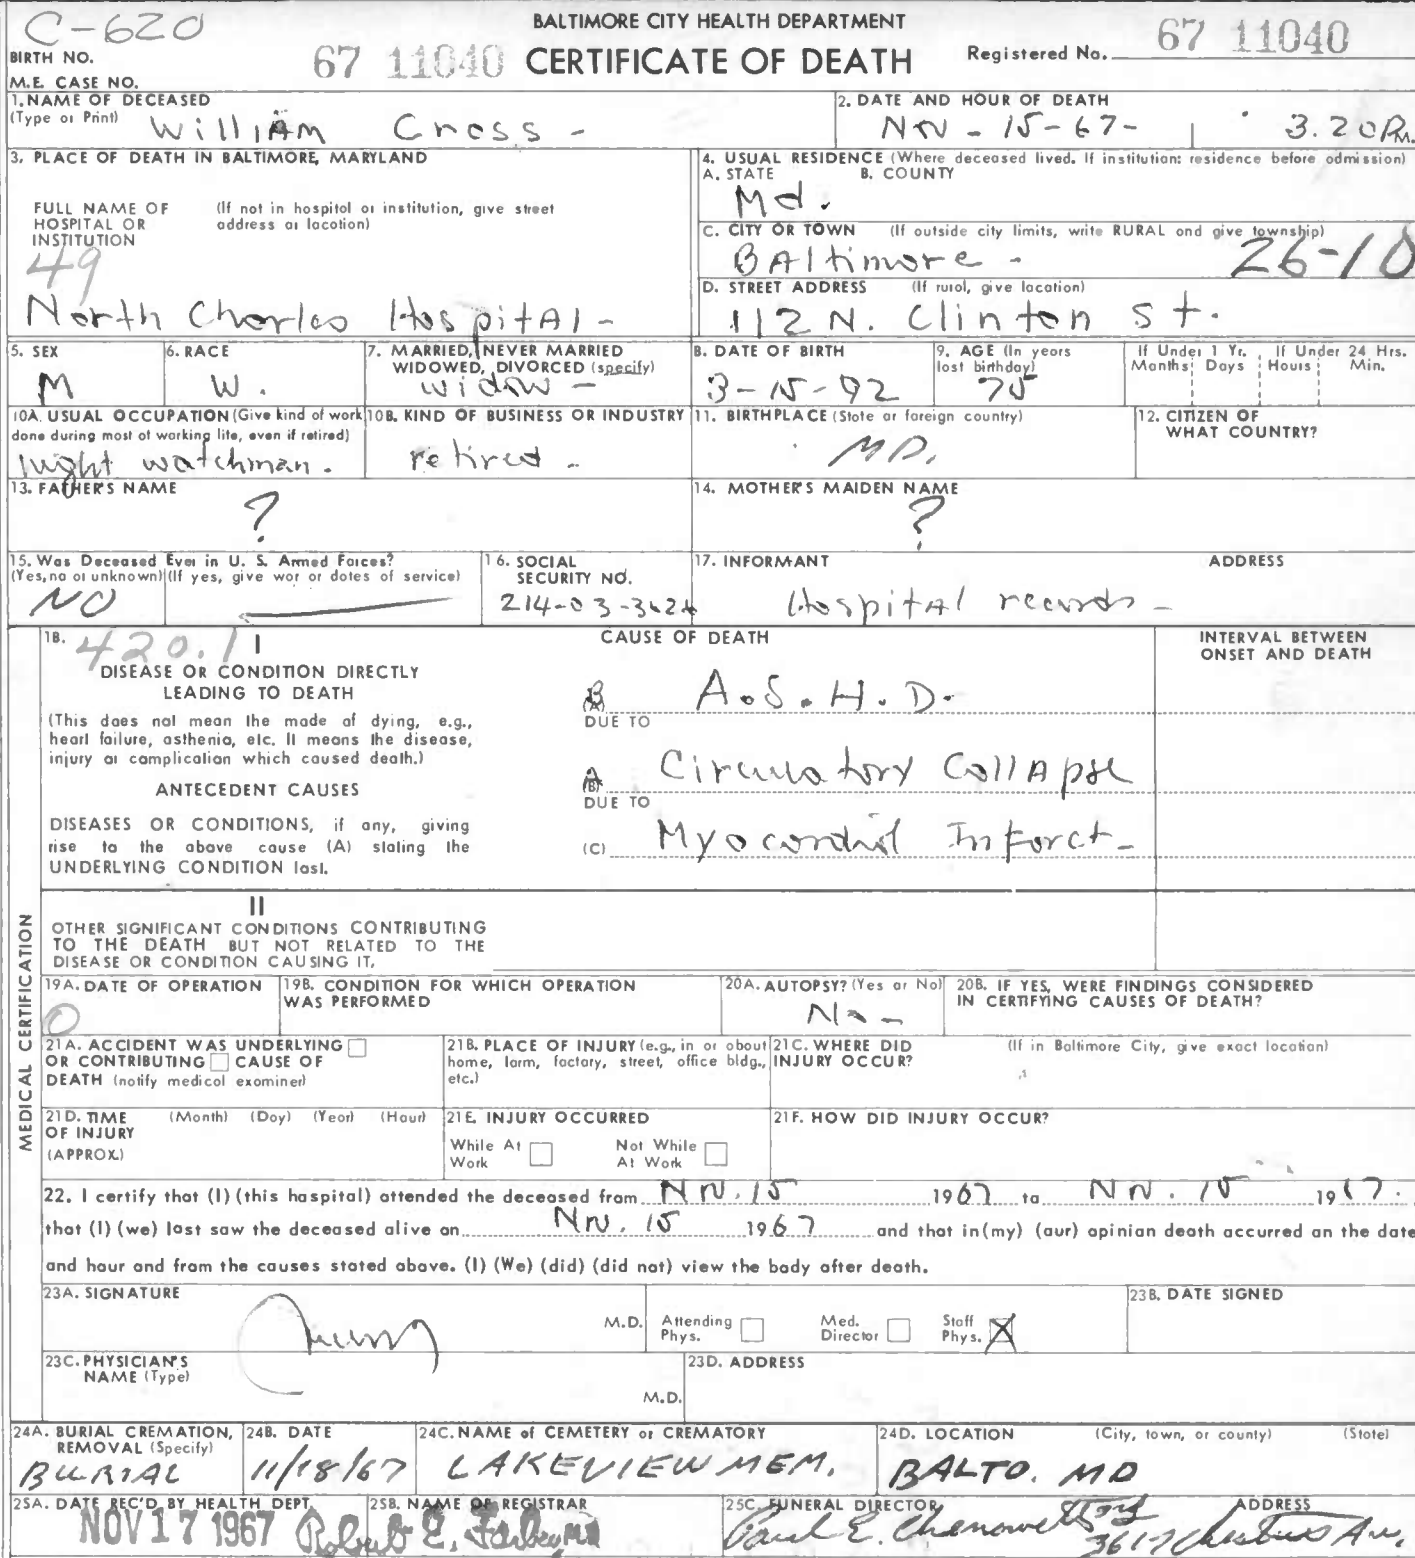 C-620
BALTIMORE CITY HEALTH DEPARTMENT
BIRTH NO. 67 11040 CERTIFICATE OF DEATH Registered No. 67 11040
M.E. CASE NO.
1. NAME OF DECEASED (Type or Print) William Cross -
2. DATE AND HOUR OF DEATH Nov - 15-67- 3.20 P M.
3. PLACE OF DEATH IN BALTIMORE, MARYLAND
FULL NAME OF HOSPITAL OR INSTITUTION (If not in hospital or institution, give street address or location)
49
North Charles Hospital -
4. USUAL RESIDENCE (Where deceased lived. If institution: residence before admission)
A. STATE B. COUNTY
Md.
C. CITY OR TOWN (If outside city limits, write RURAL and give township)
Baltimore - 26-10
D. STREET ADDRESS (If rural, give location)
112 N. Clinton St.
5. SEX M
6. RACE W.
7. MARRIED, NEVER MARRIED WIDOWED, DIVORCED (specify) widow -
8. DATE OF BIRTH 3-15-92
9. AGE (In years last birthday) 75
If Under 1 Yr. Months Days If Under 24 Hrs. Hours Min.
10A. USUAL OCCUPATION (Give kind of work done during most of working life, even if retired) night watchman.
10B. KIND OF BUSINESS OR INDUSTRY retired -
11. BIRTHPLACE (State or foreign country) MD.
12. CITIZEN OF WHAT COUNTRY?
13. FATHER'S NAME ?
14. MOTHER'S MAIDEN NAME ?
15. Was Deceased Ever in U. S. Armed Forces? (Yes, no or unknown) (If yes, give war or dates of service) NO
16. SOCIAL SECURITY NO. 214-03-
17. INFORMANT ADDRESS
Hospital records -
MEDICAL CERTIFICATION
18. 420.1 I CAUSE OF DEATH INTERVAL BETWEEN ONSET AND DEATH
DISEASE OR CONDITION DIRECTLY LEADING TO DEATH
(This does not mean the mode of dying, e.g., heart failure, asthenia, etc. It means the disease, injury or complication which caused death.)
B (A) A.S.H.D.
DUE TO
A (B) Circulatory Collapse
DUE TO
(C) Myocardial Infarct -
ANTECEDENT CAUSES
DISEASES OR CONDITIONS, if any, giving rise to the above cause (A) stating the UNDERLYING CONDITION last.
II
OTHER SIGNIFICANT CONDITIONS CONTRIBUTING TO THE DEATH BUT NOT RELATED TO THE DISEASE OR CONDITION CAUSING IT.
19A. DATE OF OPERATION 0
19B. CONDITION FOR WHICH OPERATION WAS PERFORMED
20A. AUTOPSY? (Yes or No) No -
20B. IF YES, WERE FINDINGS CONSIDERED IN CERTIFYING CAUSES OF DEATH?
21A. ACCIDENT WAS UNDERLYING OR CONTRIBUTING CAUSE OF DEATH (notify medical examiner)
21B. PLACE OF INJURY (e.g., in or about home, farm, factory, street, office bldg., etc.)
21C. WHERE DID INJURY OCCUR? (If in Baltimore City, give exact location)
21D. TIME OF INJURY (APPROX.) (Month) (Day) (Year) (Hour)
21E. INJURY OCCURRED While At Work Not While At Work
21F. HOW DID INJURY OCCUR?
22. I certify that (I) (this hospital) attended the deceased from Nov. 15 1967 to Nov. 15 1967.
that (I) (we) last saw the deceased alive on Nov. 15 1967 and that in (my) (our) opinion death occurred on the date
and hour and from the causes stated above. (I) (We) (did) (did not) view the body after death.
23A. SIGNATURE M.D. Attending Phys. Med. Director Staff Phys. X
23B. DATE SIGNED
23C. PHYSICIAN'S NAME (Type) M.D.
23D. ADDRESS
24A. BURIAL CREMATION, REMOVAL (Specify) BURIAL
24B. DATE 11/18/67
24C. NAME of CEMETERY or CREMATORY LAKEVIEW MEM.
24D. LOCATION (City, town, or county) (State) BALTO. MD
25A. DATE REC'D BY HEALTH DEPT. NOV 17 1967
25B. NAME OF REGISTRAR Robert E. Farber
25C. FUNERAL DIRECTOR ADDRESS
Paul E. Chenoweth 3617